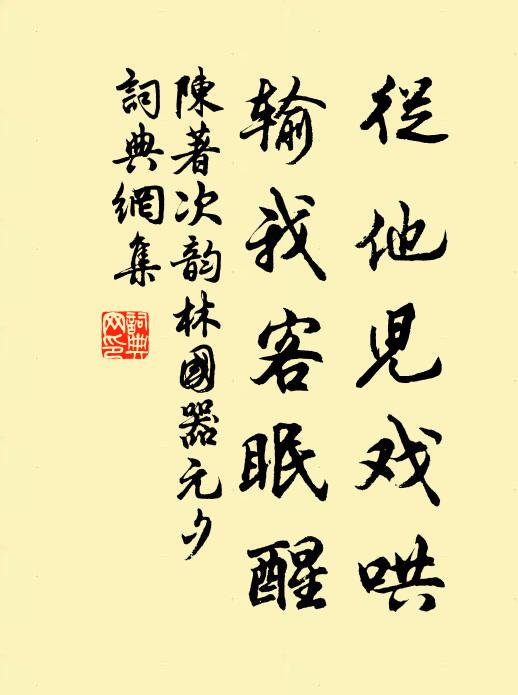 從他兒戏哄
输我客眠醒
陳著次韵林國器元夕
詞典網集
詞典网印